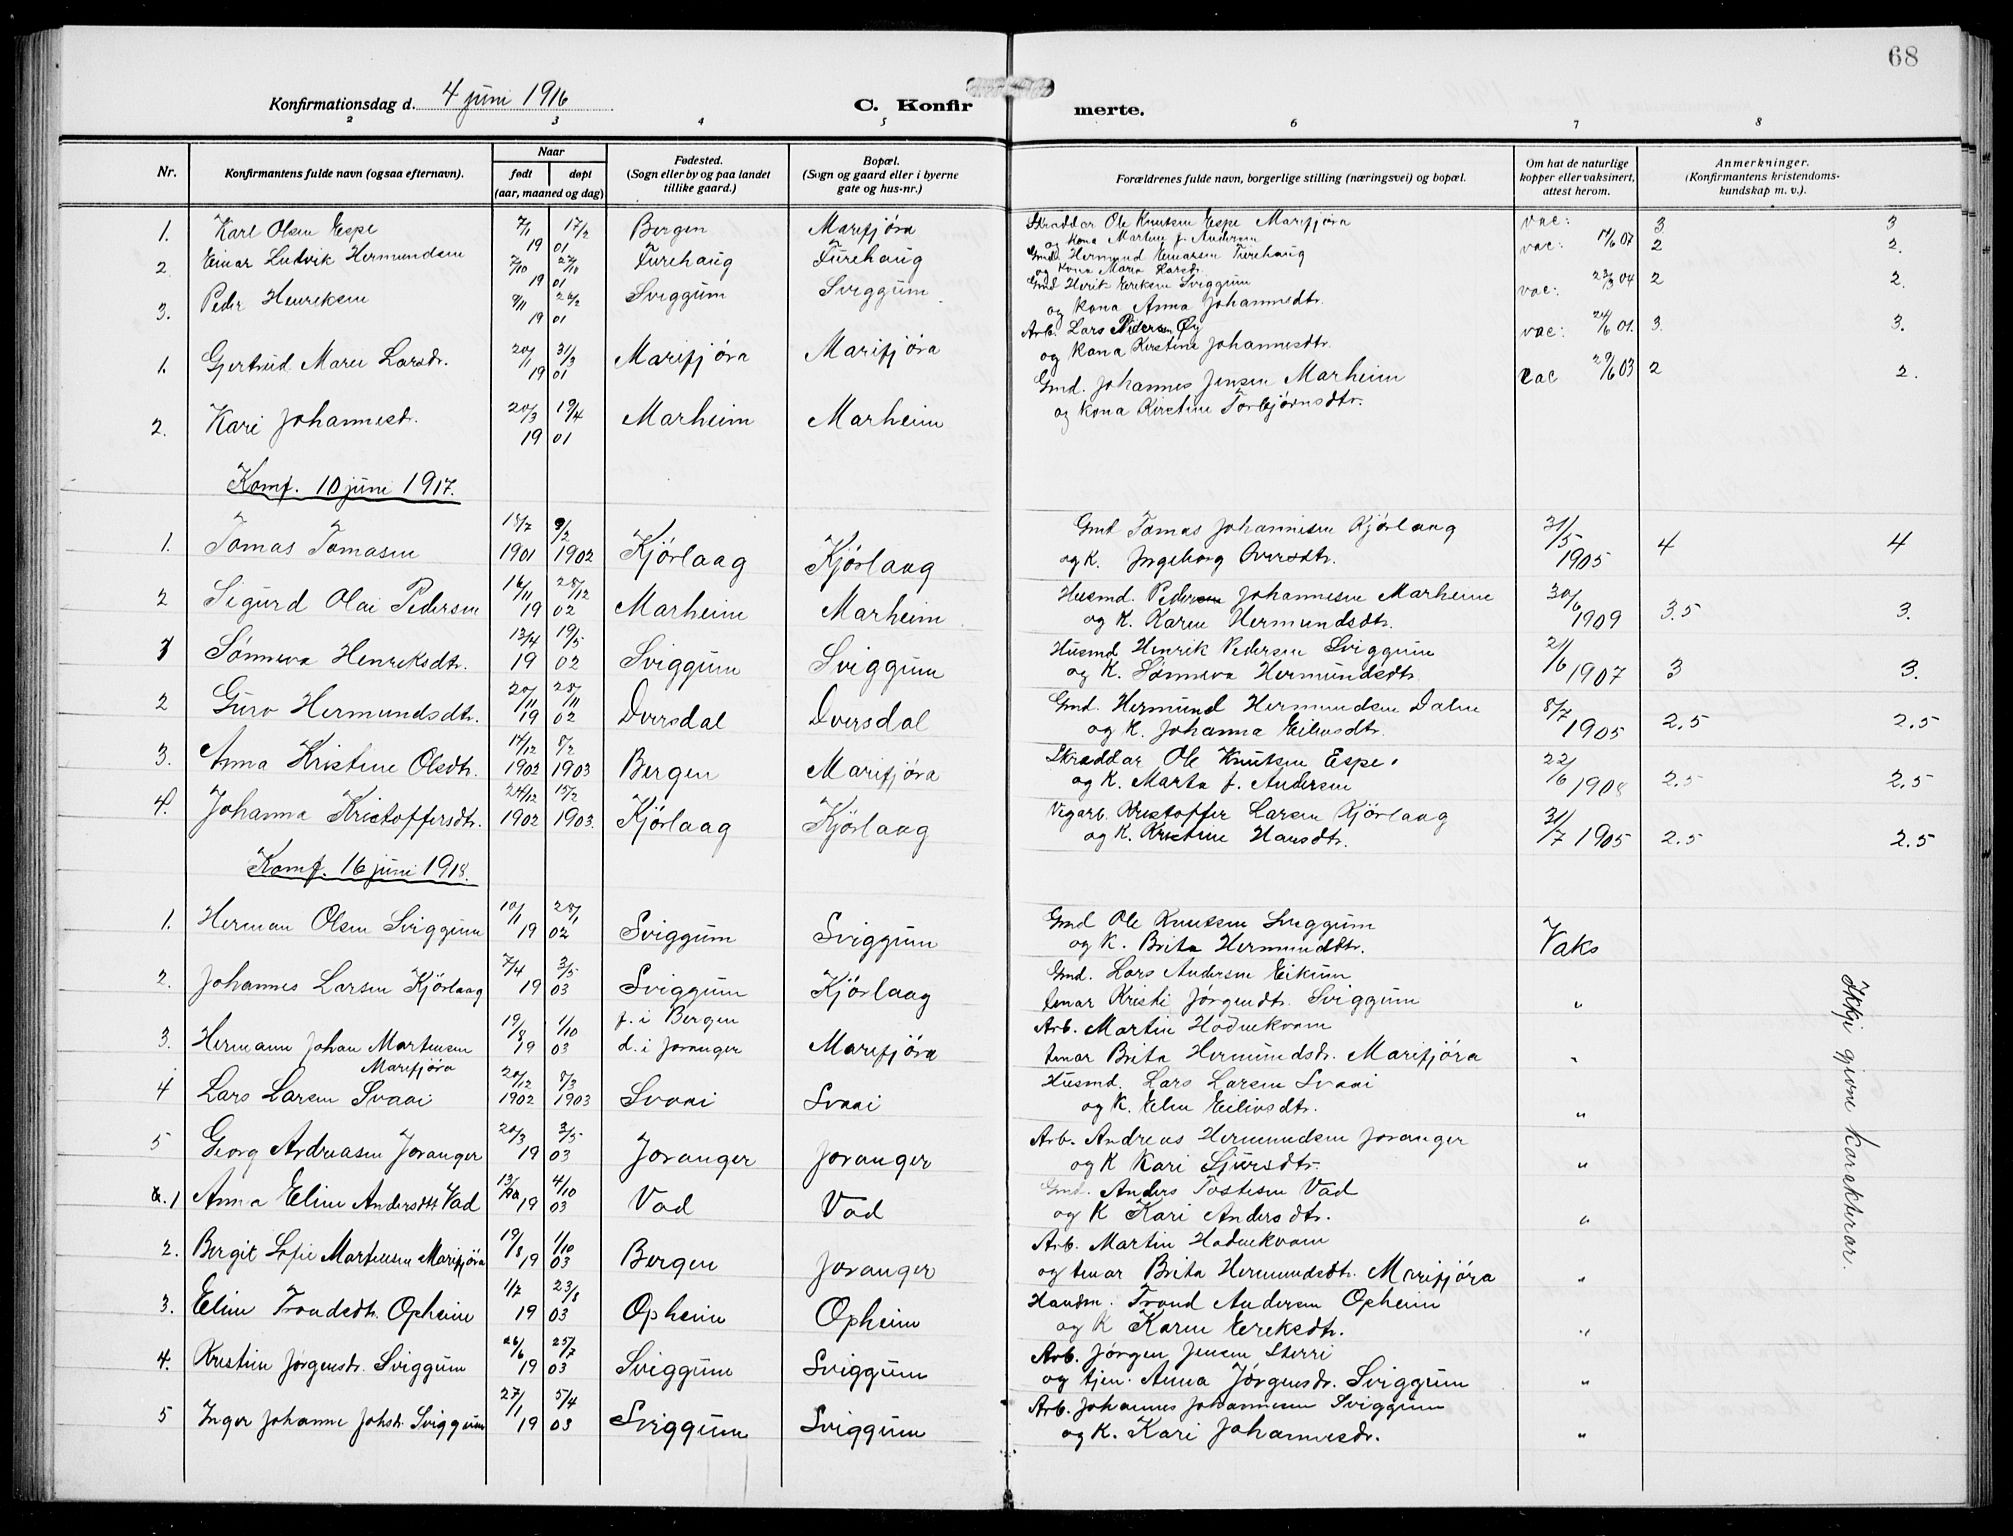 68
Konfirmationsdag d. 4 juni 1916 C. Konfirmerte.
2 3 4 5 6 7 8
Nr. Konfirmantens fulde navn (ogsaa efternavn). Naar født døpt (aar, maaned og dag) Fødested. (Sogn eller by og paa landet tillike gaard.) Bopæl. (Sogn og gaard eller i byerne gate og hus-nr.) Forældrenes fulde navn, borgerlige stilling (næringsvei) og bopæl. Om hat de naturlige kopper eller vaksinert, attest herom. Anmerkninger. (Konfirmantens kristendomskundskap m. v.).
1. Karl Olsen Espe 7/1 17/2 1901 Bergen Marifjøra Skræddar Ole Knutsen Espe Marifjøra vac: 3 3
og kona Martine f. Andersen
2. Einar Ludvik Hermundsen 7/10 27/10 1901 Turehaug Turehaug Gmd Hermund Einarsen Turehaug vac: 17/6 07 2 2.
og kona Maria Larsdr.
3. Peder Henriksen 9/11 26/2 1901 Sviggum Sviggum Gmd Henrik Eriksen Sviggum vac: 23/3 04 2 2.
og kona Anna Johannesdtr.
1. Gjertrud Marie Larsdr. 20/1 31/3 1901 Marifjøra Marifjøra Arb. Lars Pedersen Øy vac: 24/6 01. 3. 3.
og kona Kirstine Johannesdtr.
2. Kari Johannesdr. 20/3 19/4 1901 Marheim Marheim Gmd. Johannes Jensen Marheim vac 29/6 03 2 2.
og kona Kirstine Torbjørnsdtr.
Komf. 10 juni 1917.
1. Tomas Tomasen 18/7 1901 9/2 1902 Kjørlaag Kjørlaag Gmd Tomas Johannesen Kjørlaag 31/5 1905 4 4
og K. Ingeborg Oversdtr.
2 Sigurd Olai Pedersen 16/11 28/12 1902 Marheim Marheim Husmd. Peder Johannesen Marheim 30/6 1909 3.5 3.
og K. Karen Hermundsdtr.
1 Sønneva Henriksdtr. 13/4 19/5 1902 Sviggum Sviggum Husmd Henrik Pedersen Sviggum 21/6 1907 3 3.
og K. Sønneva Hermundsdtr.
2 Guro Hermundsdtr. 20/11 28/11 1902 Dversdal Dversdal Gmd. Hermund Hermundsen Dalen 8/7 1905 2.5 2.5
og K. Johanna Eilivsdtr.
3. Anna Kristine Olsdtr. 14/12 1902 8/2 1903 Bergen Marifjøra Skræddar Ole Knutsen Espe. 22/6 1908 2.5 2.5
og K. Marta f. Andersen
4. Johanna Kristoffersdtr. 24/12 1902 15/2 1903. Kjørlaag Kjørlaag Vegarb. Kristoffer Larsen Kjørlaag 31/7 1905 2.5 2.5
og K. Kristine Hansdtr.
Komf. 16 juni 1918.
1. Herman Olsen Sviggum 10/1 28/1 1902 Sviggum Sviggum Gmd Ole Knutsen Sviggum Vaks
og K. Brita Hermundsdtr.
2. Johannes Larsen Kjørlaag 7/4 3/5 1903 Sviggum Kjørlaag Gmd. Lars Andersen Eikum "
tenar Kristi Jørgensdtr. Sviggum
3. Hermann Johan Martinsen Marifjøra 19/8 1/10 1903 f. i Bergen d. i Joranger Marifjøra Arb. Martin Hodnekvam "
tenar Brita Hermundsdr. Marifjøra
4 Lars Larsen Svaai 20/12 1902 8/3 1903 Svaai Svaai Husmd. Lars Larsen Svaai "
og K. Elen Eilivsdtr.
5 Georg Andreasen Joranger 20/3 3/5 1903 Joranger Joranger Arb. Andreas Hermundsen Joranger "
og K Kari Sjursdtr.
1 Anna Eline Andersdtr Vad 4/10 1903 Vad Vad Gmd. Anders Tostesen Vad "
og K Kari Andersdtr.
2. Bergit Sofie Martinsen Marifjøra 19/8 1/10 1903 Bergen Joranger Arb. Martin Hodnekvam "
og tenar Brita Hermundsdtr. Marifjøra
3. Eline Trondsdtr. Opheim 1/7 23/8 1903 Opheim Opheim Handm. Trond Andersen Opheim "
og K Karen Eriksdtr.
4. Kristine Jørgensdr. Sviggum 26/6 25/7 1903 Sviggum Sviggum Arb. Jørgen Jensen Sterri "
og tjen. Anna Jørgensdr. Sviggum
5 Inger Johanne Johsdr. Sviggum 27/1 5/4 1903 Sviggum Sviggum Arb. Johannes Johannesen Sviggum "
og K. Kari Johannesdr.
Ikkji gjevne karakterar.